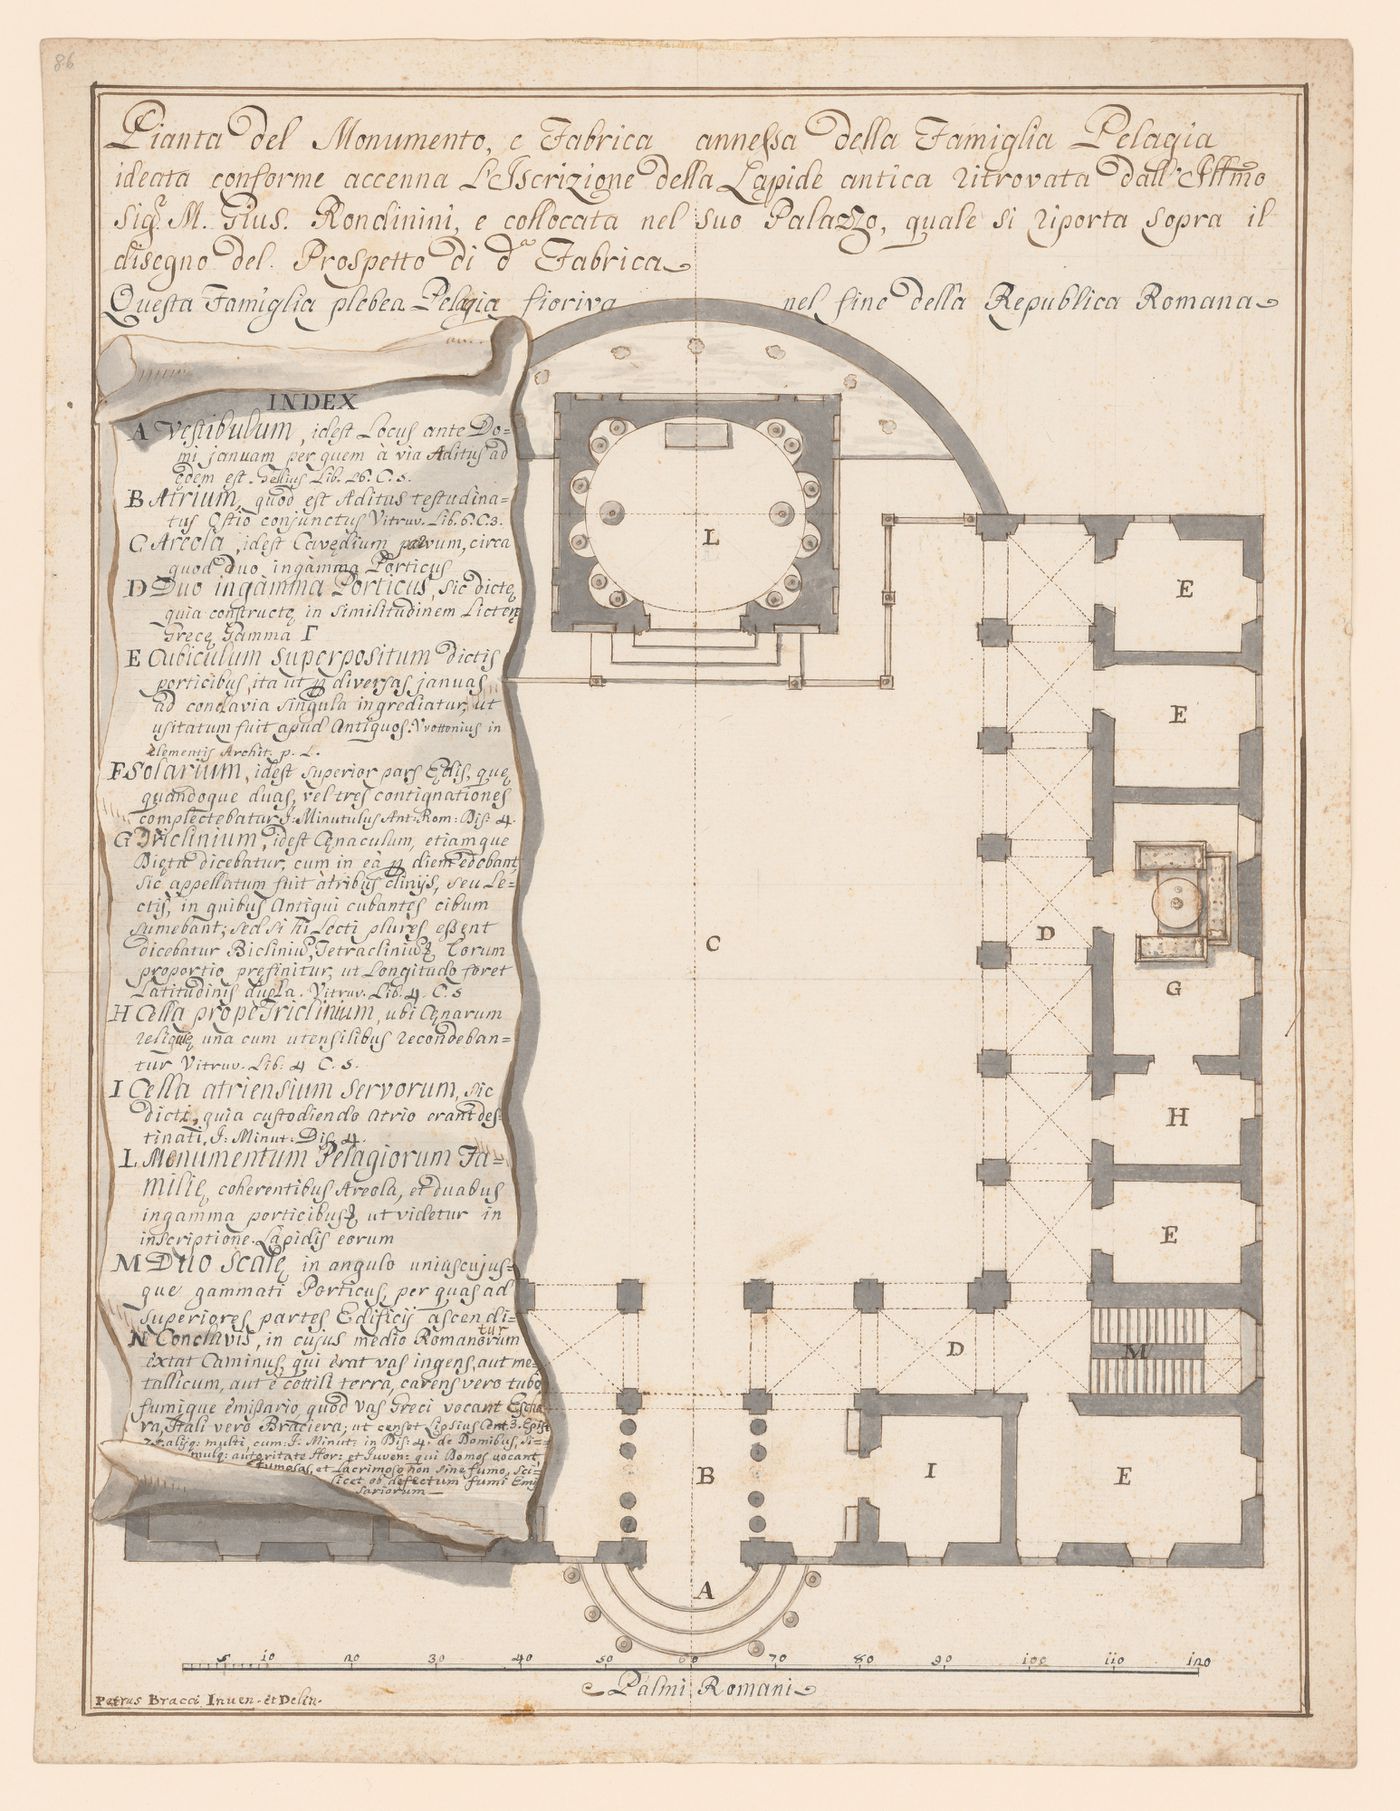 86
Pianta del Monumento, e Fabrica annessa della Famiglia Pelagia
ideata conforme accenna L'Iscrizione della Lapide antica ritrovata dall' Illmo
Sigr. M. Gius. Rondinini, e collocata nel suo Palazzo, quale si riporta sopra il
disegno del Prospetto di da Fabrica
Questa Famiglia plebea Pelagia fioriva nel fine della Republica Romana
INDEX
A Vestibulum, idest Locus ante Do=
mi januam per quem à via Aditus ad
Ędem est. Gellius Lib. 16. C. 5.
B Atrium, quod est Aditus testudina=
tus Ostio conjunctus Vitruv. Lib. 6. C. 3.
C Areola, idest Cavędium parvum, circa
quod duo ingàmma Porticus
D Duo ingàmma Porticus, sic dictę
quia constructę in similitudinem Licterę
Gręcę Gamma Γ
E Cubiculum superpositum dictis
porticibus, ita ut p diversas januas
ad conclavia singula ingrediatur, ut
usitatum fuit apud Antiquos. Vvottonius in
elementis Archit. p. L.
F Solarium, idest superior pars Ędis, quę
quandoque duas, vel tres contignationes
complectebatur J. Minutulus Ant: Rom: Dis: 4.
G Triclinium, idest Cęnaculum, etiamque
Dięta dicebatur, cum in eà p diem edebant,
sic appellatum fuit àtribus clinijs, seu Le=
ctis, in quibus Antiqui cubantes cibum
sumebant; sed si hi Lecti plures essent
dicebatur Bicliniu, Tetracliniuq Eorum
proportio prefinitur, ut Longitudo foret
Latitudinis dupla. Vitruv. Lib. 4. C. 5
H Cella propè Triclinium, ubi Cęnarum
reliquię una cum utensilibus recondeban=
tur Vitruv. Lib: 4 C. 5.
I Cella atriensium servorum, sic
dicti, quia custodiendo atrio erant des=
tinati, J: Minut: Dis. 4.
L Monumentum Pelagiorum Fa=
milię coherentibus Areola, et duabus
ingamma porticibusq ut videtur in
inscriptione Làpidis eorum
M Duo Scalę in angulo uniuscujus=
que gammati Porticus, per quas ad
superiores partes Edificij ascendi=
tur
N Conclavis, in cujus medio Romanorum
extat Caminus, qui èrat vas ingens, aut me=
tallicum, aut è cottili terra, carens vero tubo
fumique èmissario quod vas Greci vocant Escha
ra, Itali verò Braciera; ut censet Lipsius Cent. 3. Epist.
alisq: multi, cum J: Minut: in Dis: 4. de Domibus, si=
mulq: autoritate Hor: et Iuven: qui Domos vocant
fumosas, et Lacrimoso non sine fumo, sci=
licet ob defectum fumi Emis
sariorum
L
E
E
C
D
G
H
E
D
M
B
I
E
A
5 10 20 30 40 50 60 70 80 90 100 110 120
Palmi Romani
Petrus Bracci Inven. èt Delin.